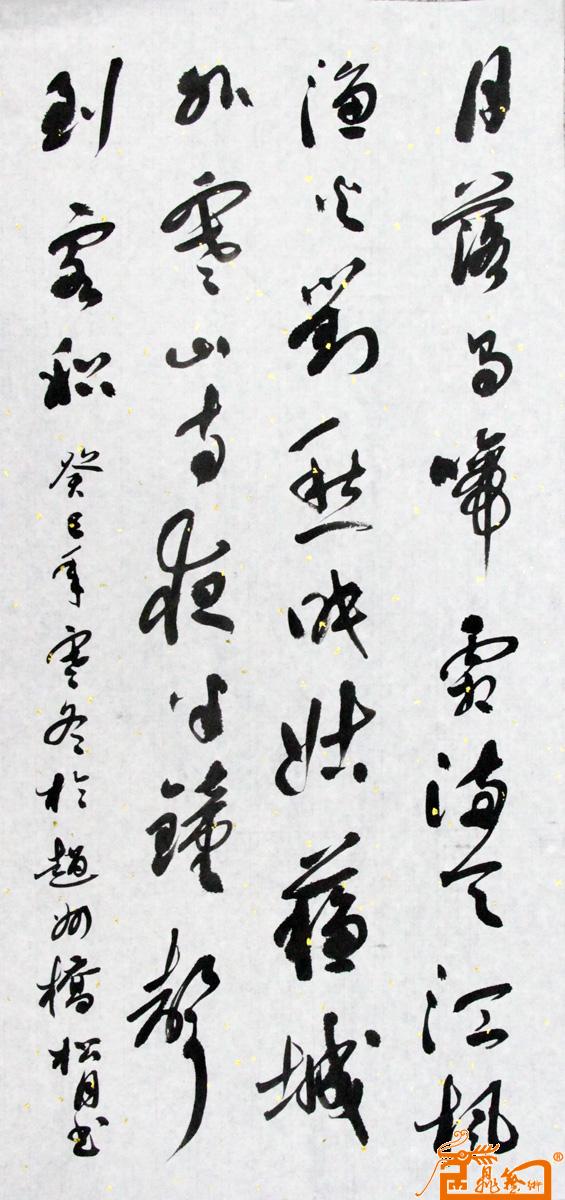 月落烏啼霜滿天江楓
漁火對愁眠姑蘇城
外寒山寺夜半鐘聲
到客船
癸巳年寒冬於趙州橋松月書